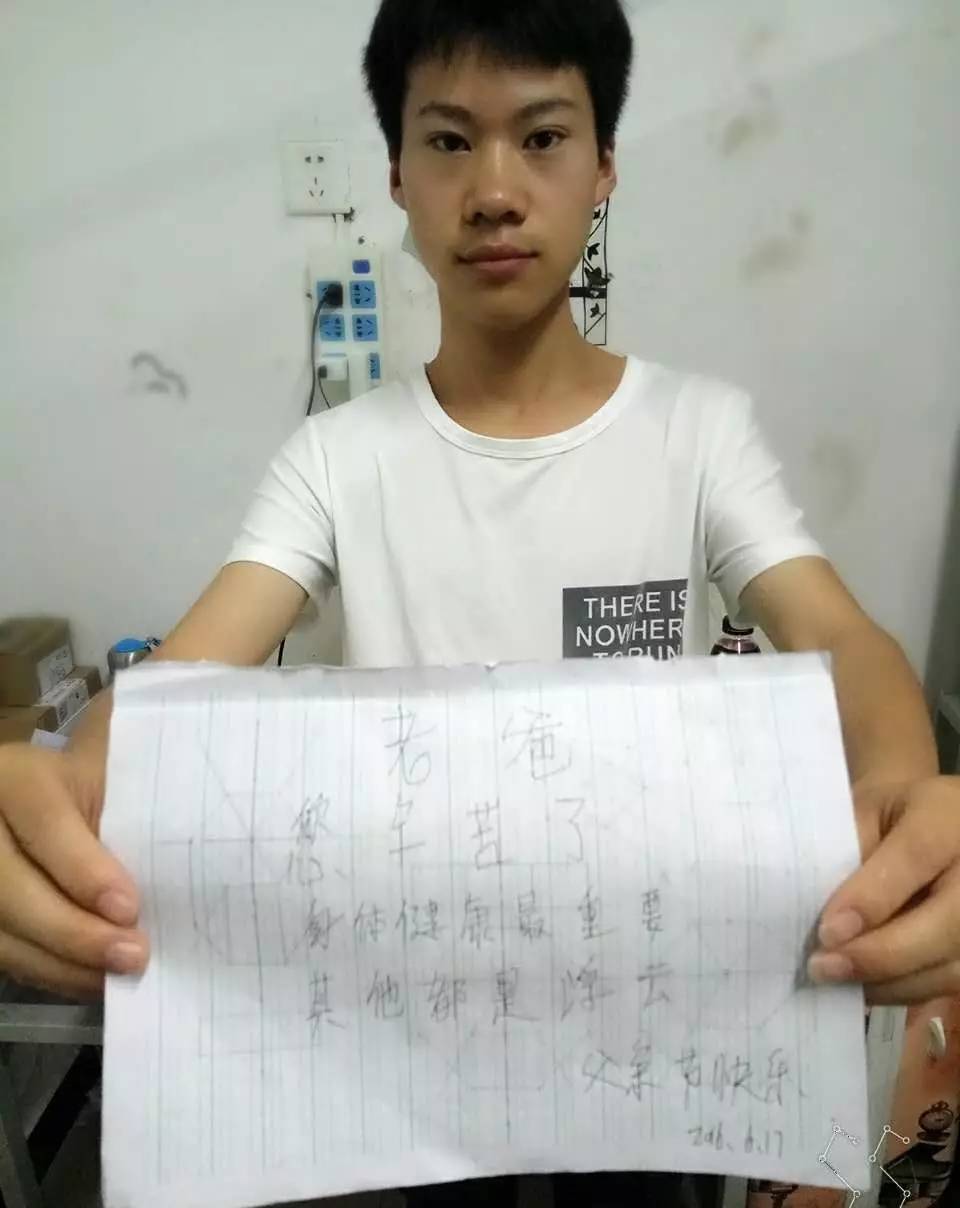 THERE IS
NOWHER
TORUN
老爸
您辛苦了
身体健康最重要
其他都是浮云
父亲节快乐
2016.6.17